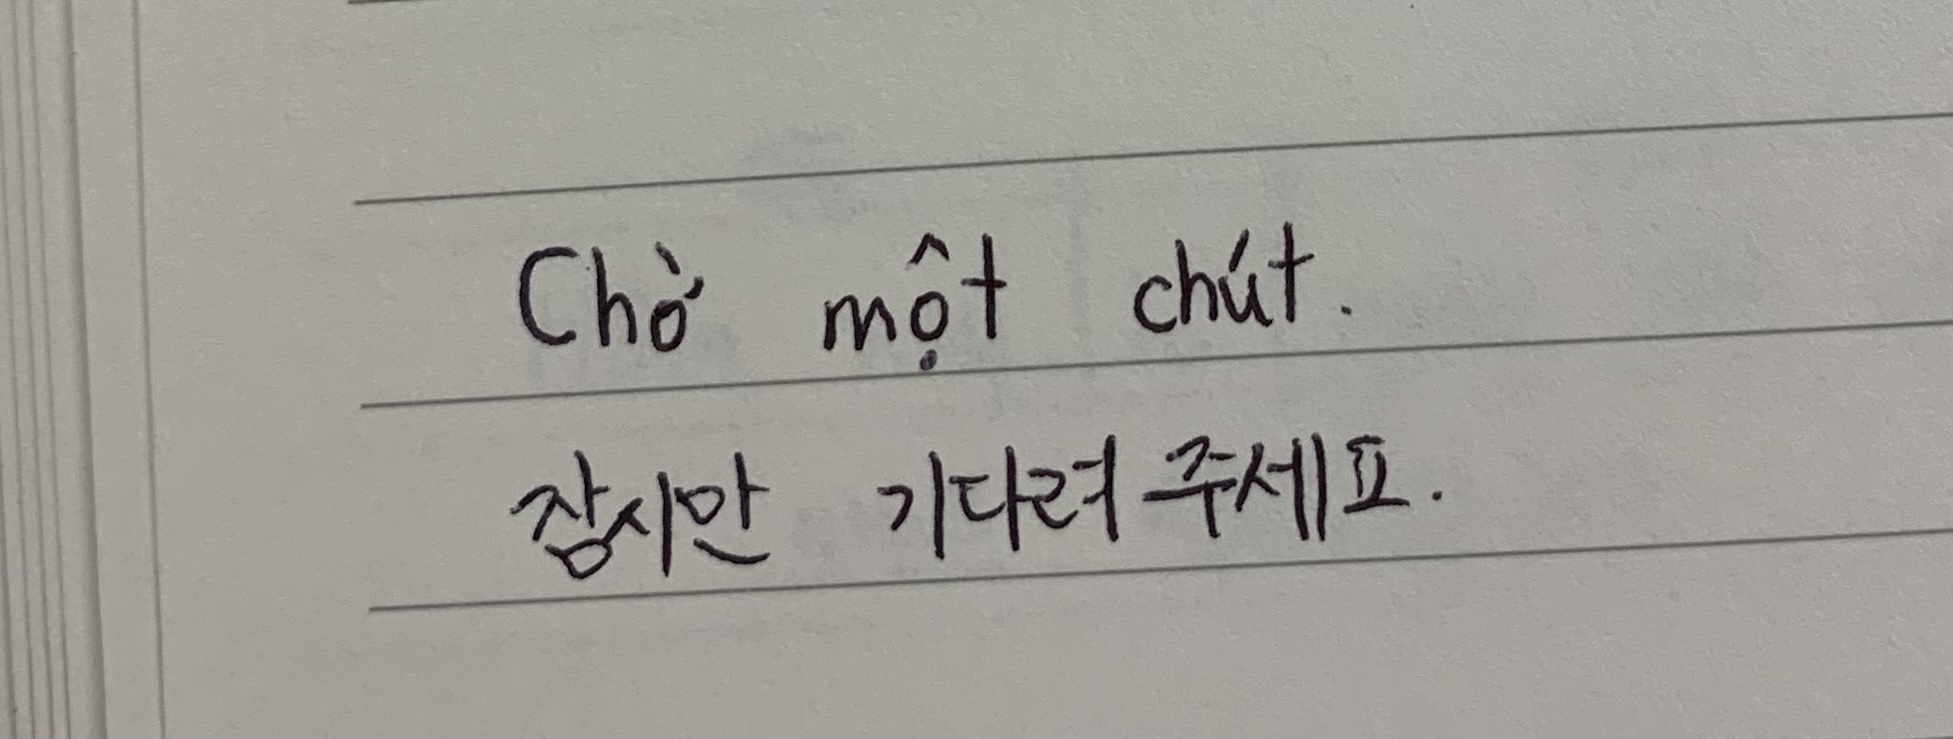 Chờ một chút.
잠시만 기다려 주세요.